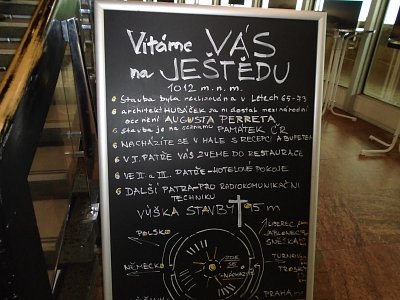 Vítáme VÁS
na JEŠTĚDU
1012 m.n.m.
Stavba byla realizována v Letech 65-73
architekt HUBÁČEK za ni dostal mezinárodní
ocenění AUGUSTA PERRETA
stavba je na seznamu PAMÁTEK ČR
NACHÁZÍTE SE V HALE S RECEPCÍ A BUFETEM
V I. PATŘE VÁS ZVEME DO RESTAURACE
VE II. a III. PATŘE-HOTELOVÉ POKOJE
DALŠÍ PATRA-PRO RADIOKOMUNIKAČNÍ
TECHNIKU
VÝŠKA STAVBY 95 m
POLSKO
LIBEREC
JABLONEC
SNĚŽKA
NĚMECKO
ZDE
SE
NACHÁZÍTE
TURNOV
TROSKY
PRAHA